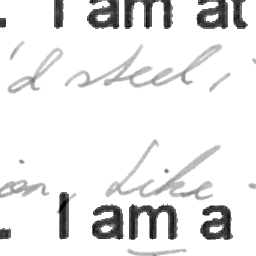 . I am at
'd steel,
ion, Like
. I am a